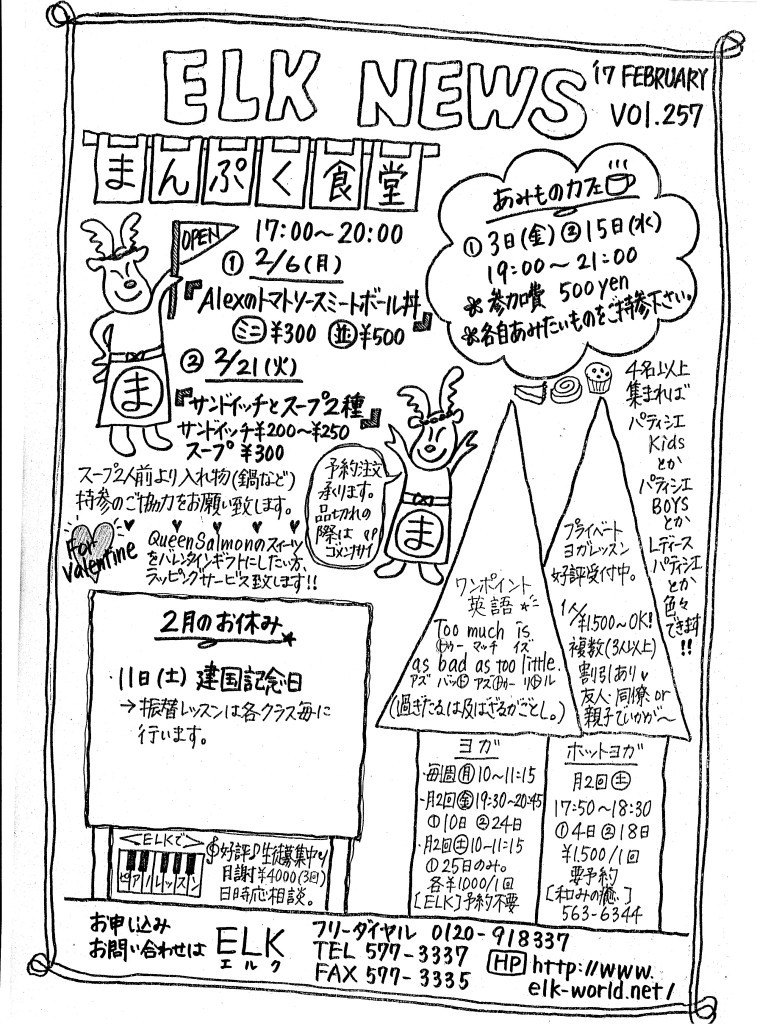 ELK NEWS
'17 FEBRUARY
VOL.257
まんぷく食堂
OPEN
17:00～20:00
① 2/6(月)
『Alexのトマトソースミートボール丼』
ミニ ¥300 並 ¥500
② 2/21(火)
『サンドイッチとスープ2種』
サンドイッチ¥200～¥250
スープ ¥300
ま
スープ2人前より入れ物(鍋など)
持参のご協力をお願い致します。
あみものカフェ
① 3日(金) ② 15日(水)
19:00～21:00
※参加費 500yen
※各自あみたいものをご持参下さい。
予約注文
承ります。
品切れの
際は
ゴメンナサイ
ま
For Valentine
Queen Salmonのスイーツ
をバレンタインギフトにしたい方、
ラッピングサービス致します!!
4名以上
集まれば
パティシエ
Kids
とか
パティシエ
BOYS
とか
Lディース
パティシエ
とか
色々
できます
!!
ワンポイント
英語
Too much is
トゥー マッチ イズ
as bad as too little.
アズ バッド アズ トゥー リトル
(過ぎたるは及ばざるがごとし。)
プライベート
ヨガレッスン
好評受付中。
1人
¥1500～OK!
複数(3人以上)
割引あり♥
友人・同僚 or
親子でいかが～
2月のお休み
11日(土) 建国記念日
→振替レッスンは各クラス毎に
行います。
ヨガ
・毎週月 10～11:15
・月2回金 19:30～20:45
①10日 ②24日
・月2回土 10～11:15
①25日のみ。
各¥1000/1回
[ELK]予約不要
ホットヨガ
月2回土
17:50～18:30
①4日②18日
¥1,500/1回
要予約
[和みの癒]
563-6344
<ELKで>
ピアノレッスン
好評♪生徒募集中♪
月謝¥4000(3回)
日時応相談。
お申し込み
お問い合わせは
ELK
エルク
フリーダイヤル 0120-918337
TEL 577-3337
FAX 577-3335
HP http://www.
elk-world.net/